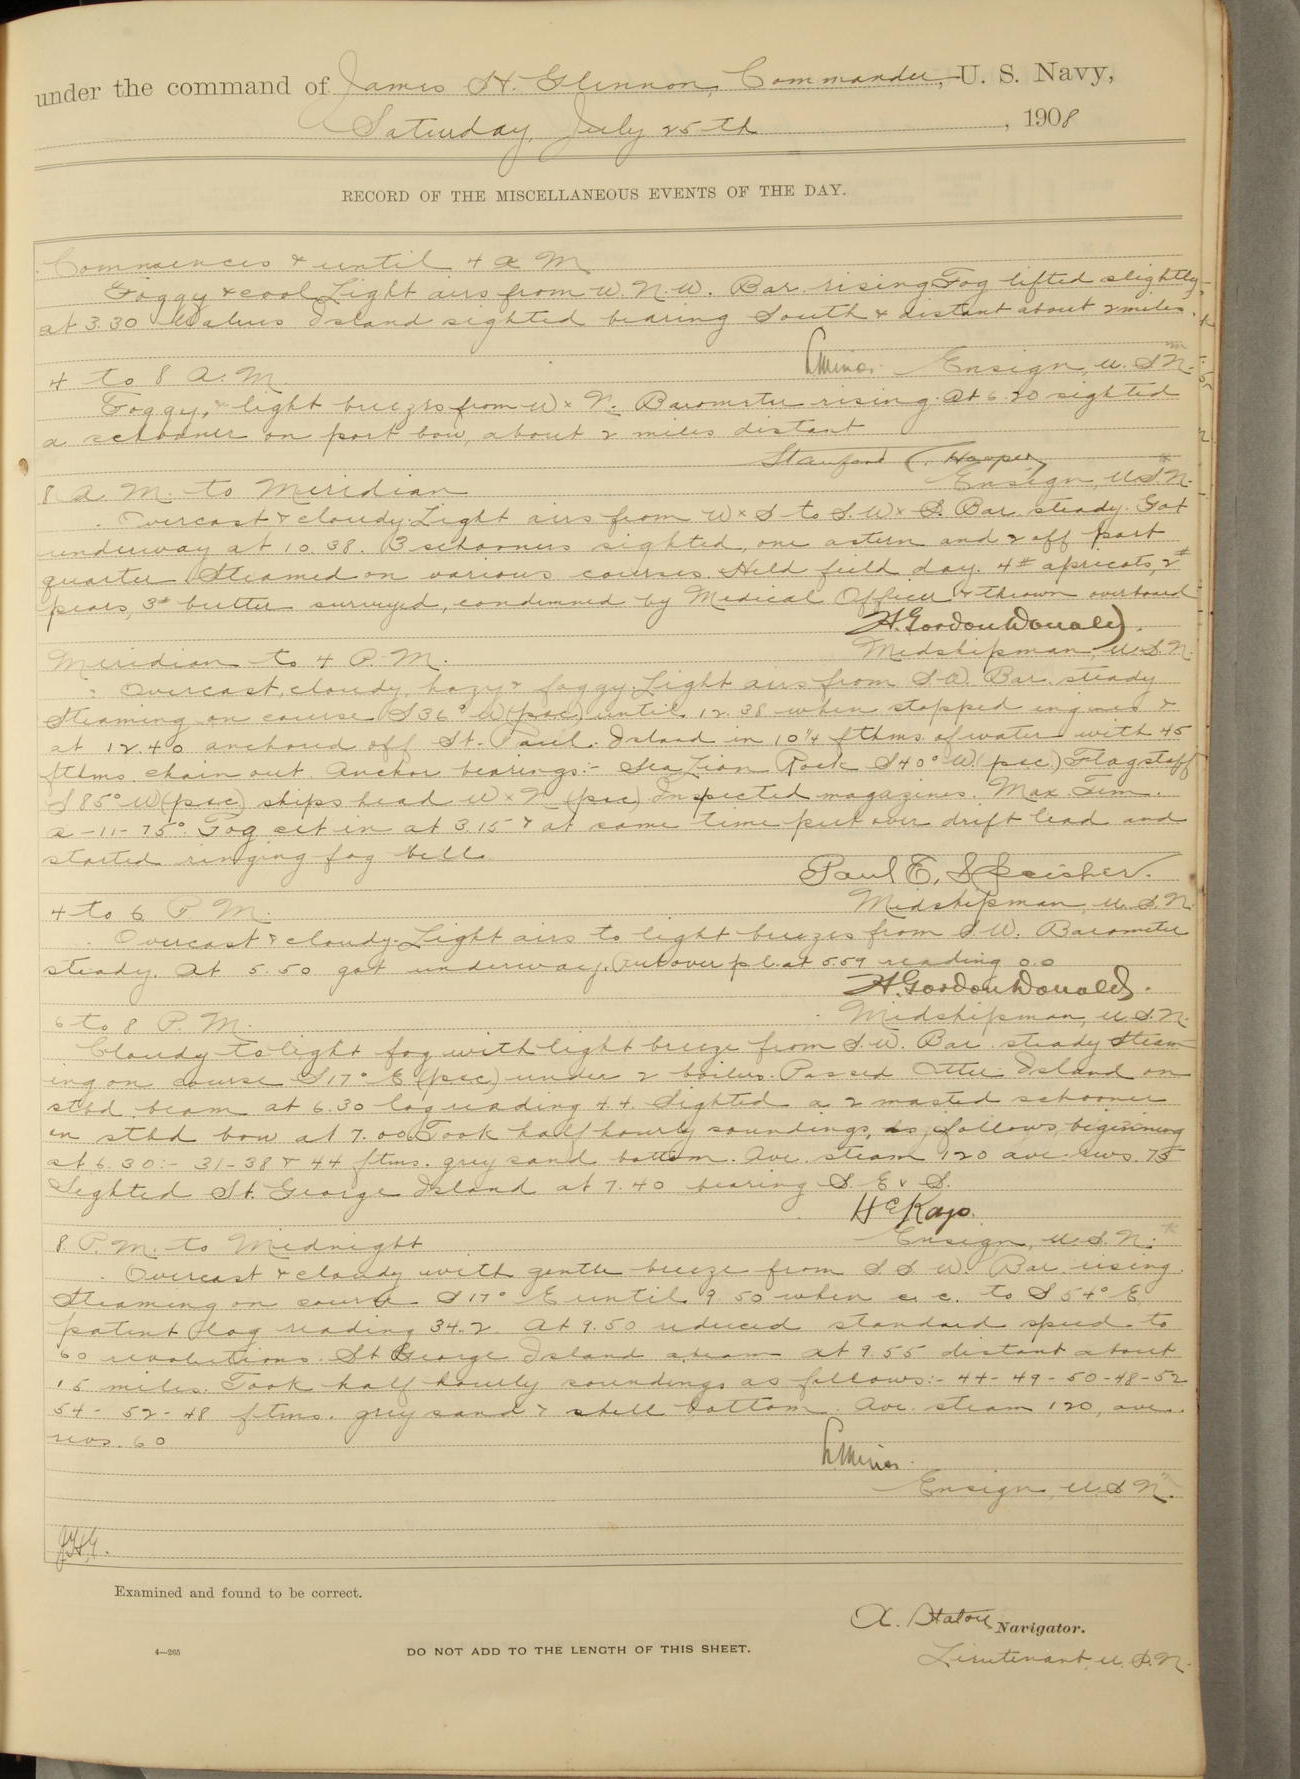 under the command of James H. Glennon, Commander, U. S. Navy,
Saturday, July 25th, 1908
RECORD OF THE MISCELLANEOUS EVENTS OF THE DAY.
Commences & until 4 a M
Foggy & cool Light airs from W. N. W. Bar. rising Fog lifted slightly
at 3.30 Walrus Island sighted bearing South & distant about 2 miles.
Ensign, U. S N.
4 to 8 A. M
Foggy, & light breezes from W x N. Barometer rising. At 6.20 sighted
a schooner on port bow, about 2 miles distant
Stanford C. Hooper
Ensign, U.S N.
8 A. M. to Meridian
Overcast & cloudy. Light airs from W x S to S. W x S. Bar. steady. Got
underway at 10.38. 3 schooners sighted, one astern and 2 off port
quarter Steamed on various courses. Held field day. 4# apricots, 2#
pears, 3# butter surveyed, condemned by Medical Officer & thrown overboard
H. Gordon Donald.
Midshipman, U.S.N.
Meridian to 4 P. M.
Overcast, cloudy, hazy & foggy. Light airs from S.W. Bar. steady
Steaming on course S 36° W (psc) until 12.38 when stopped engines &
at 12.40 anchored off St. Paul Island in 10¼ fthms. of water with 45
fthms. chain out. Anchor bearings:- Sea Lion Rock S 40° W (psc.) Flagstaff
S 85° W (psc) ships head W x N (psc) Inspected magazines. Max. Tem.
A-11-75°. Fog set in at 3.15 & at same time put over drift lead and
started ringing fog bell.
Paul E. Speicher.
Midshipman, U. S. N.
4 to 6 P M.
Overcast & cloudy. Light airs to light breezes from S. W. Barometer
steady. At 5.50 got underway. Put over p.l. at 5.59 reading 0.0
H. Gordon Donald.
Midshipman, U.S.N.
6 to 8 P. M.
Cloudy to light fog with light breeze from S.W. Bar. steady Steam-
ing on course S 17° E (psc) under 2 boilers. Passed Otter Island on
stbd beam at 6.30 log reading 4.4. Sighted a 2 masted schooner
on stbd bow at 7.00. Took half hourly soundings, as follows, beginning
at 6.30:- 31-38 & 44 ftms. grey sand bottom. Ave. steam 120 ave. revs. 75
Sighted St. George Island at 7.40 bearing S. E x S.
Ensign, U.S.N.
8 P. M. to Midnight
Overcast & cloudy with gentle breeze from S S W. Bar. rising.
Steaming on course S 17° E until 9.50 when c. c. to S 54° E.
patent log reading 34.2. At 9.50 reduced standard speed to
60 revolutions. St George Island abeam at 9.55 distant about
15 miles. Took half hourly soundings as follows:- 44-49-50-48-52
54- 52-48 ftms. grey sand & shell bottom. Ave. steam 120, ave.
revs. 60
Ensign, U.S N.
J.H.G.
Examined and found to be correct.
A. Staton Navigator.
Lieutenant, U. S. N.
4—265
DO NOT ADD TO THE LENGTH OF THIS SHEET.